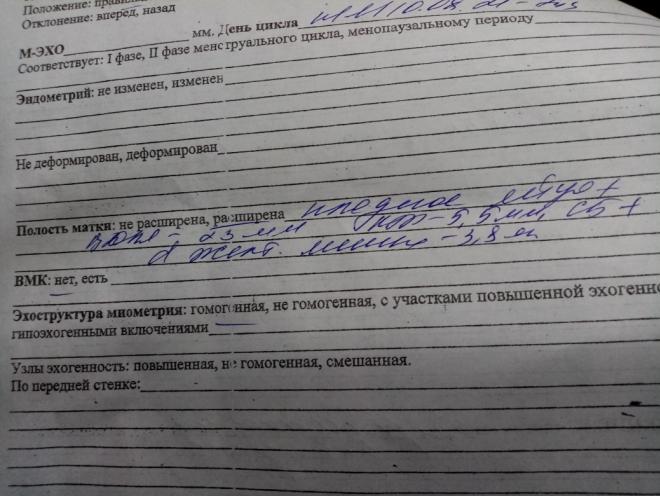 Положение: прави
Отклонение: вперед, назад
М-ЭХО мм. День цикла
Соответствует: I фазе, II фазе менструального цикла, менопаузальному периоду
Эндометрий: не изменен, изменен
Не деформирован, деформирован
Полость матки: не расширена, расширена плодное яйцо +
- 23 мм КТР - 5,5 мм, СБ +
d желт. мешка - 3,8 м
ВМК: нет, есть
Эхоструктура миометрия: гомогенная, не гомогенная, с участками повышенной эхоген
гипоэхогенными включениями
Узлы эхогенность: повышенная, не гомогенная, смешанная.
По передней стенке: